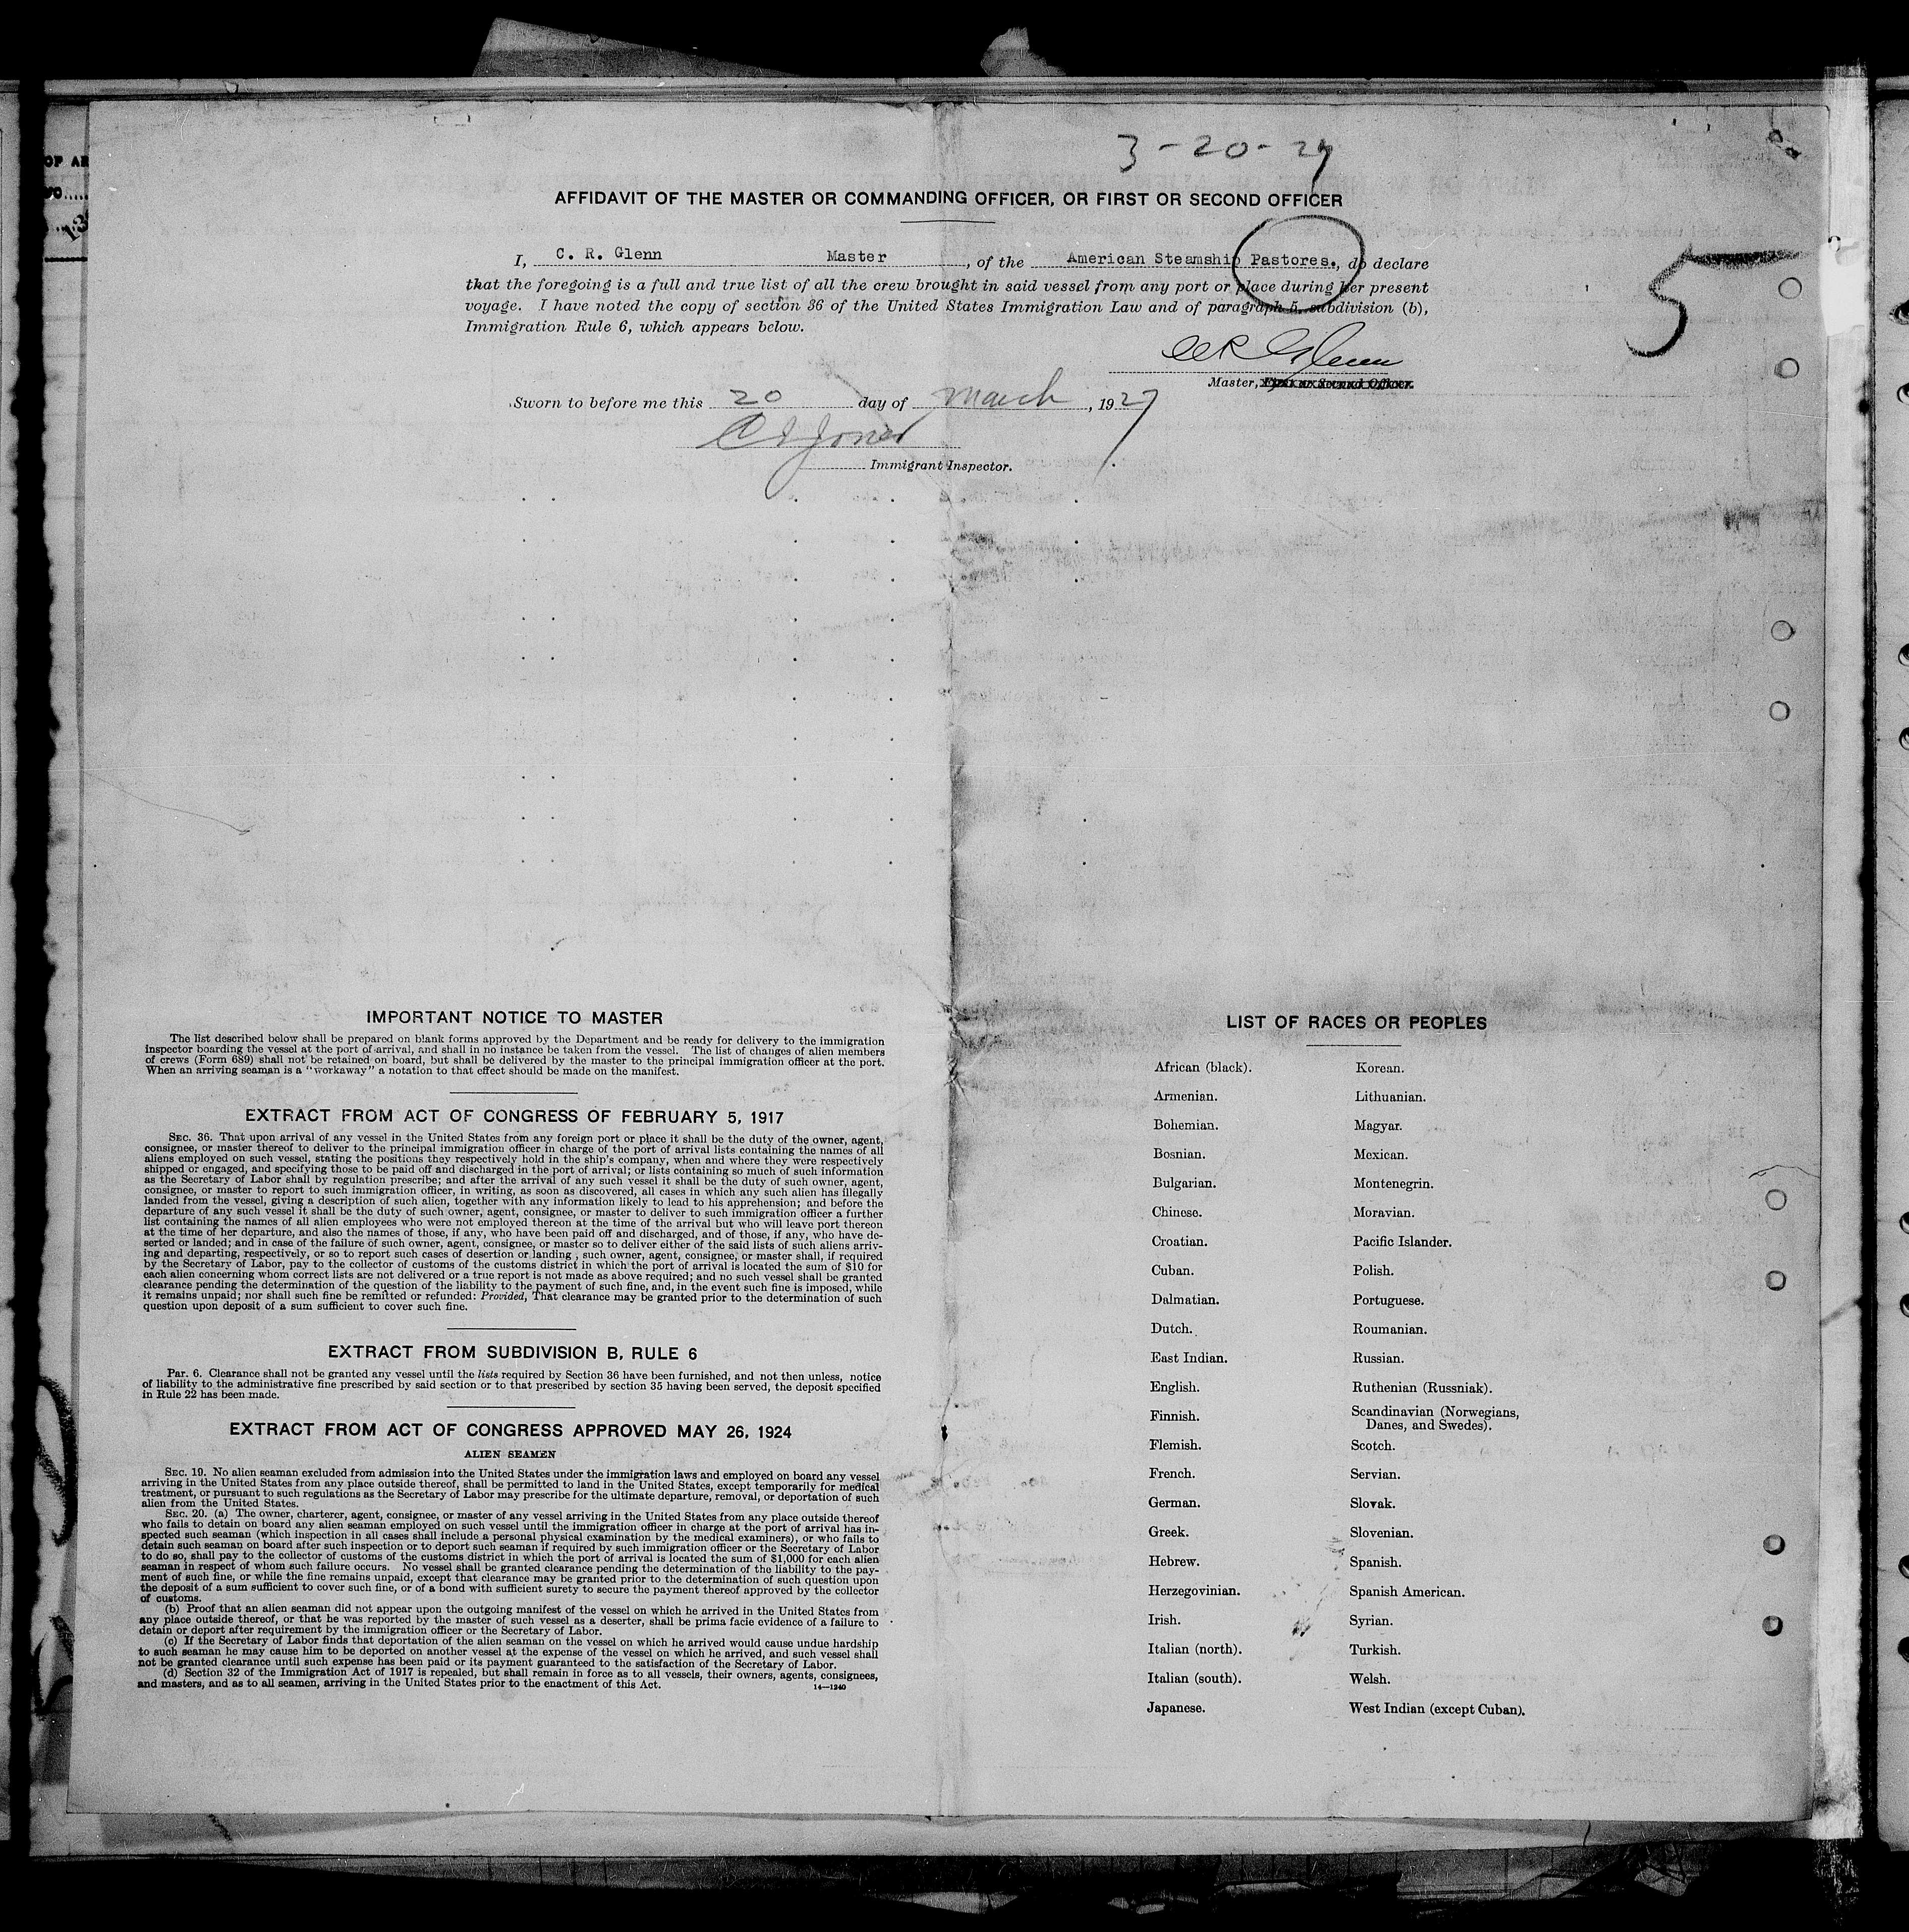 3-20-27
AFFIDAVIT OF THE MASTER OR COMMANDING OFFICER, OR FIRST OR SECOND OFFICER
I, C. R. Glenn Master, of the American Steamship Pastores., do declare
that the foregoing is a full and true list of all the crew brought in said vessel from any port or place during her present
voyage. I have noted the copy of section 36 of the United States Immigration Law and of paragraph 5, subdivision (b),
Immigration Rule 6, which appears below.
5
CR Glenn
Master, First or Second Officer.
Sworn to before me this 20 day of March, 1927
Jones
Immigrant Inspector.
IMPORTANT NOTICE TO MASTER
The list described below shall be prepared on blank forms approved by the Department and be ready for delivery to the immigration
inspector boarding the vessel at the port of arrival, and shall in no instance be taken from the vessel. The list of changes of alien members
of crews (Form 689) shall not be retained on board, but shall be delivered by the master to the principal immigration officer at the port.
When an arriving seaman is a "workaway" a notation to that effect should be made on the manifest.
EXTRACT FROM ACT OF CONGRESS OF FEBRUARY 5, 1917
SEC. 36. That upon arrival of any vessel in the United States from any foreign port or place it shall be the duty of the owner, agent,
consignee, or master thereof to deliver to the principal immigration officer in charge of the port of arrival lists containing the names of all
aliens employed on such vessel, stating the positions they respectively hold in the ship's company, when and where they were respectively
shipped or engaged, and specifying those to be paid off and discharged in the port of arrival; or lists containing so much of such information
as the Secretary of Labor shall by regulation prescribe; and after the arrival of any such vessel it shall be the duty of such owner, agent,
consignee, or master to report to such immigration officer, in writing, as soon as discovered, all cases in which any such alien has illegally
landed from the vessel, giving a description of such alien, together with any information likely to lead to his apprehension; and before the
departure of any such vessel it shall be the duty of such owner, agent, consignee, or master to deliver to such immigration officer a further
list containing the names of all alien employees who were not employed thereon at the time of the arrival but who will leave port thereon
at the time of her departure, and also the names of those, if any, who have been paid off and discharged, and of those, if any, who have de-
serted or landed; and in case of the failure of such owner, agent, consignee, or master so to deliver either of the said lists of such aliens arriv-
ing and departing, respectively, or so to report such cases of desertion or landing, such owner, agent, consignee, or master shall, if required
by the Secretary of Labor, pay to the collector of customs of the customs district in which the port of arrival is located the sum of $10 for
each alien concerning whom correct lists are not delivered or a true report is not made as above required; and no such vessel shall be granted
clearance pending the determination of the question of the liability to the payment of such fine, and, in the event such fine is imposed, while
it remains unpaid; nor shall such fine be remitted or refunded: Provided, That clearance may be granted prior to the determination of such
question upon deposit of a sum sufficient to cover such fine.
EXTRACT FROM SUBDIVISION B, RULE 6
Par. 6. Clearance shall not be granted any vessel until the lists required by Section 36 have been furnished, and not then unless, notice
of liability to the administrative fine prescribed by said section or to that prescribed by section 35 having been served, the deposit specified
in Rule 22 has been made.
EXTRACT FROM ACT OF CONGRESS APPROVED MAY 26, 1924
ALIEN SEAMEN
SEC. 19. No alien seaman excluded from admission into the United States under the immigration laws and employed on board any vessel
arriving in the United States from any place outside thereof, shall be permitted to land in the United States, except temporarily for medical
treatment, or pursuant to such regulations as the Secretary of Labor may prescribe for the ultimate departure, removal, or deportation of such
alien from the United States.
SEC. 20. (a) The owner, charterer, agent, consignee, or master of any vessel arriving in the United States from any place outside thereof
who fails to detain on board any alien seaman employed on such vessel until the immigration officer in charge at the port of arrival has in-
spected such seaman (which inspection in all cases shall include a personal physical examination by the medical examiners), or who fails to
detain such seaman on board after such inspection or to deport such seaman if required by such immigration officer or the Secretary of Labor
to do so, shall pay to the collector of customs of the customs district in which the port of arrival is located the sum of $1,000 for each alien
seaman in respect of whom such failure occurs. No vessel shall be granted clearance pending the determination of the liability to the pay-
ment of such fine, or while the fine remains unpaid, except that clearance may be granted prior to the determination of such question upon
the deposit of a sum sufficient to cover such fine, or of a bond with sufficient surety to secure the payment thereof approved by the collector
of customs.
(b) Proof that an alien seaman did not appear upon the outgoing manifest of the vessel on which he arrived in the United States from
any place outside thereof, or that he was reported by the master of such vessel as a deserter, shall be prima facie evidence of a failure to
detain or deport after requirement by the immigration officer or the Secretary of Labor.
(c) If the Secretary of Labor finds that deportation of the alien seaman on the vessel on which he arrived would cause undue hardship
to such seaman he may cause him to be deported on another vessel at the expense of the vessel on which he arrived, and such vessel shall
not be granted clearance until such expense has been paid or its payment guaranteed to the satisfaction of the Secretary of Labor.
(d) Section 32 of the Immigration Act of 1917 is repealed, but shall remain in force as to all vessels, their owners, agents, consignees,
and masters, and as to all seamen, arriving in the United States prior to the enactment of this Act.
14—1240
LIST OF RACES OR PEOPLES
African (black).
Armenian.
Bohemian.
Bosnian.
Bulgarian.
Chinese.
Croatian.
Cuban.
Dalmatian.
Dutch.
East Indian.
English.
Finnish.
Flemish.
French.
German.
Greek.
Hebrew.
Herzegovinian.
Irish.
Italian (north).
Italian (south).
Japanese.
Korean.
Lithuanian.
Magyar.
Mexican.
Montenegrin.
Moravian.
Pacific Islander.
Polish.
Portuguese.
Roumanian.
Russian.
Ruthenian (Russniak).
Scandinavian (Norwegians,
Danes, and Swedes).
Scotch.
Servian.
Slovak.
Slovenian.
Spanish.
Spanish American.
Syrian.
Turkish.
Welsh.
West Indian (except Cuban).